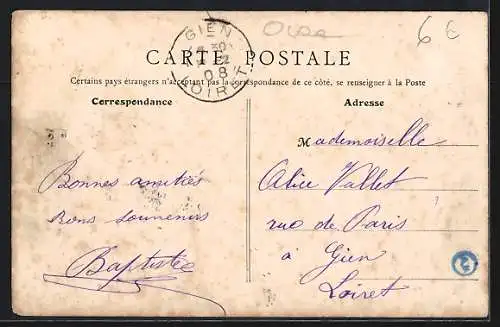 GIEN
08
LOIRET
6 €
CARTE POSTALE
Certains pays étrangers n'acceptant pas la correspondance de ce côté, se renseigner à la Poste
Correspondance
Adresse
Bonnes amitiés
Bons souvenirs
Baptistée
Mademoiselle
Alice Vallet
rue de Paris
à Gien
Loiret